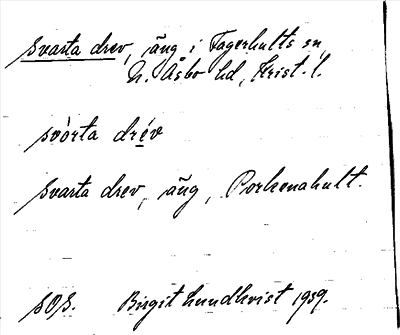 svarta drev, äng i Fagerhults sn,
N. Åsbo hd, Krist. l.
svòrta drév
svarta drev, äng, Porkenahult.
SOS. Birgit Lundkvist 1939.